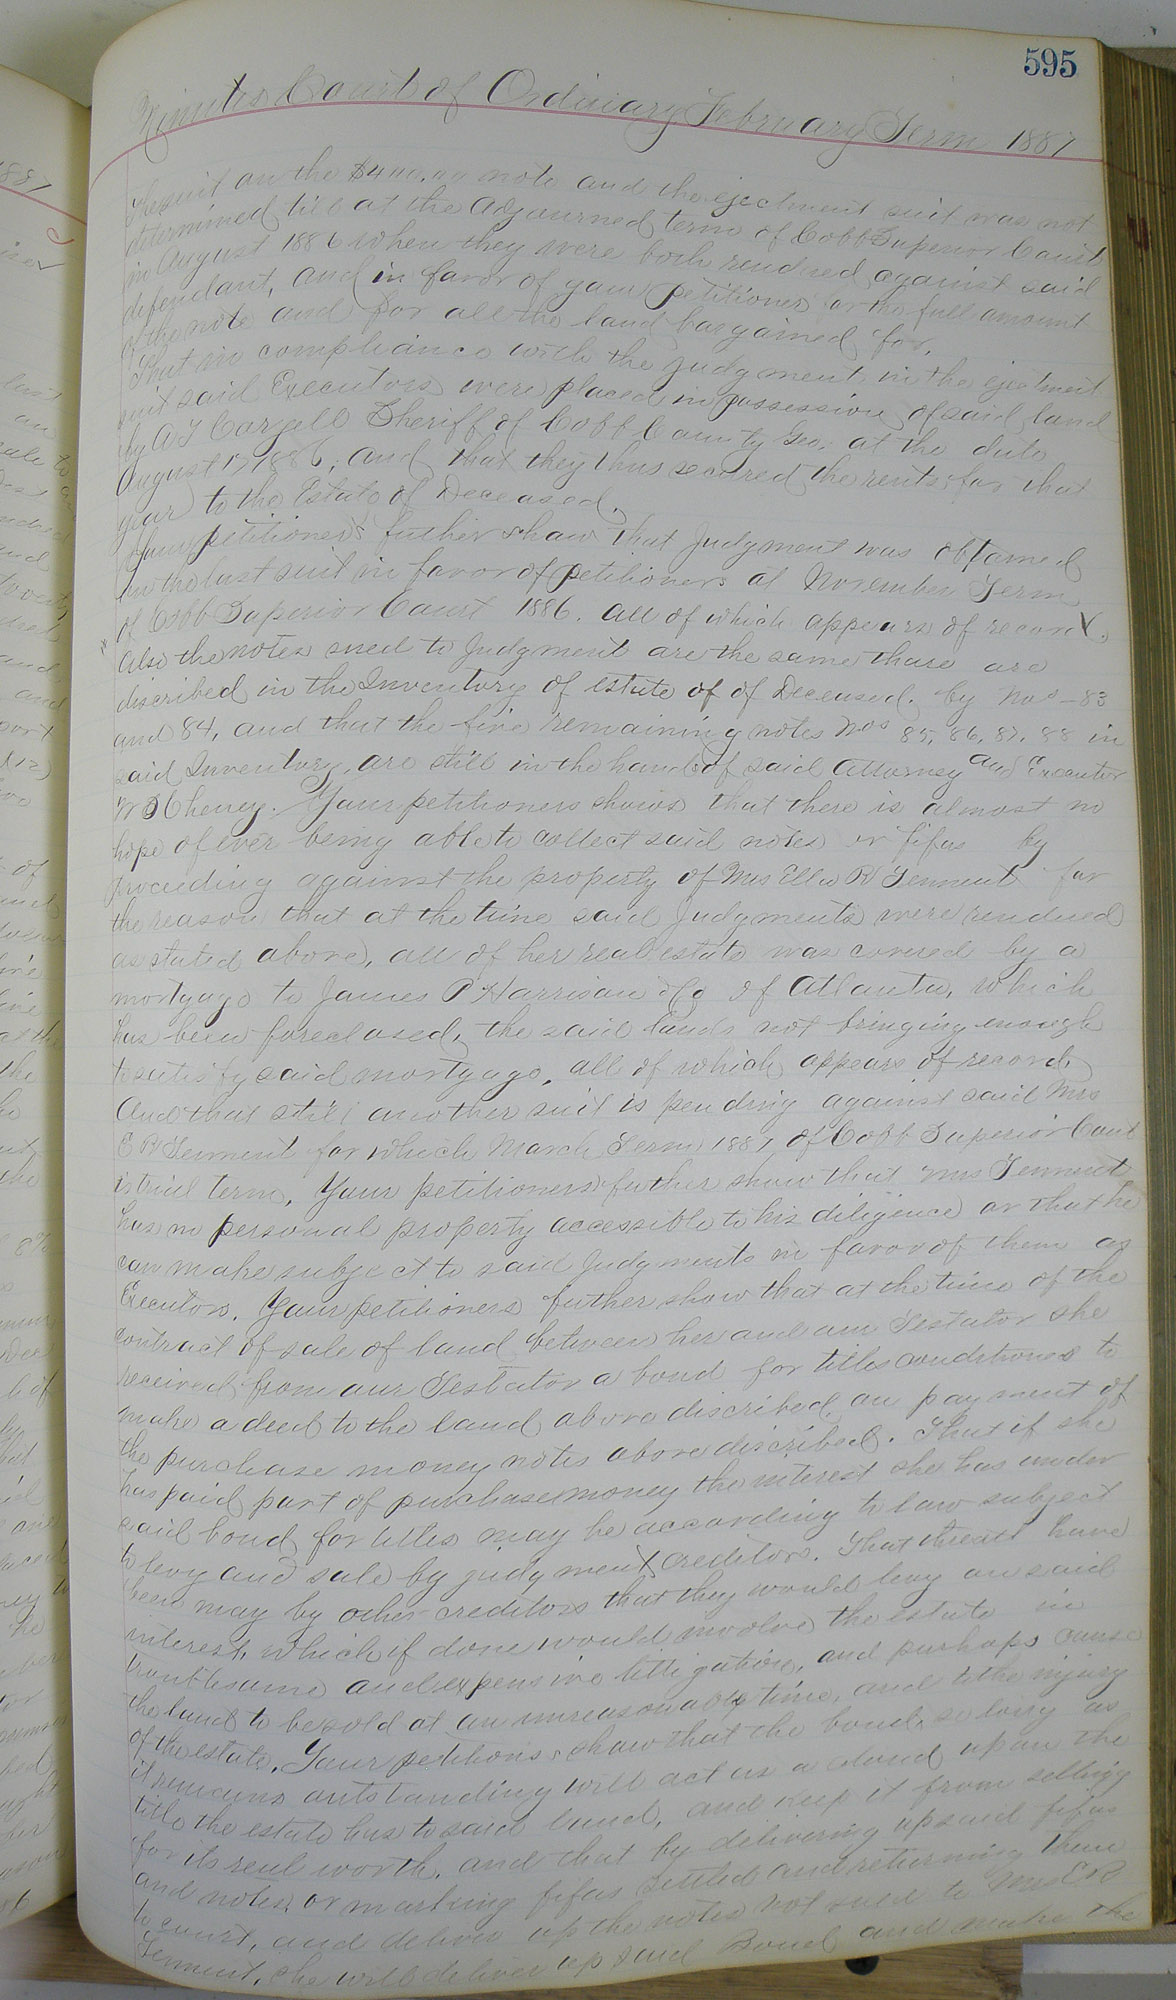 595
Minutes Court of Ordinary February Term 1887
The suit on the $400.00 note and the ejectment suit was not
determined till at the Adjourned term of Cobb Superior Court
in August 1886 when they were both rendued against said
defendant, and in favor of your petitioners for the full amount
of the note and for all the land bargained for.
That in compliance with the judgment in the ejectment
suit said Executors were placed in possession of said land
by A J Cargell Sheriff of Cobb County Geo. at the date
August 17 1886, and that they thus secured the rents for that
year to the Estate of Deceased.
Your petitioners futher show that Judgment was obtained
in the last suit in favor of petitioners at November Term
of Cobb Superior Court 1886. all of which appears of record.
Also the notes sued to Judgment are the same those are
discribed in the Inventory of estate of of Deceased. by Nos 83
and 84, and that the five remaining notes Nos 85, 86, 87, 88 in
said Inventory, are still in the hands of said Attorney and Executor
Cheney. Your petitioners shows that there is almost no
hope of ever being able to collect said notes or fifas by
proceeding against the property of Mrs Ella R Tennent for
the reason that at the time said Judgments were rendued
as stated above, all of her real estate was covered by a
mortgage to James P Harrison & Co of Atlanta, which
has been foreclosed, the said lands not bringing enough
to satisfy said mortgage, all of which appears of record,
And that still another suit is pending against said Mrs
E R Tennent for which March Term 1887 of Cobb Superior Court
is trial term. Your petitioners futher show that Mrs Tennent
has no personal property accessible to his diligence or that he
can make subject to said Judgments in favor of them as
Executors. Your petitioners futher show that at the time of the
contract of sale of land between her and our Testator she
received from our Testator a bond for titles conditioned to
make a deed to the land above discribed on payment of
the purchase money notes above discribed. That if she
has paid part of purchase money the interest she has under
said bond for titles may be according to law subject
to levy and sale by judgment creditors. That threats have
been may by other creditors that they would levy on said
interest, which if done would involve the estate in
troublesome and expensive littigation, and purhaps cause
the land to be sold at an unreasonable time, and to the injury
of the estate. Your petitions show that the bond so long as
it remains outstanding will act as a cloud upon the
title the estate has to said land, and keep it from selling
for its real worth. and that by delivering up said fifas
and notes, or marking fifas settled and returning them
to court, and deliver up the notes not sued to Mrs E R
Tennent, she will deliver up said Bond and make the